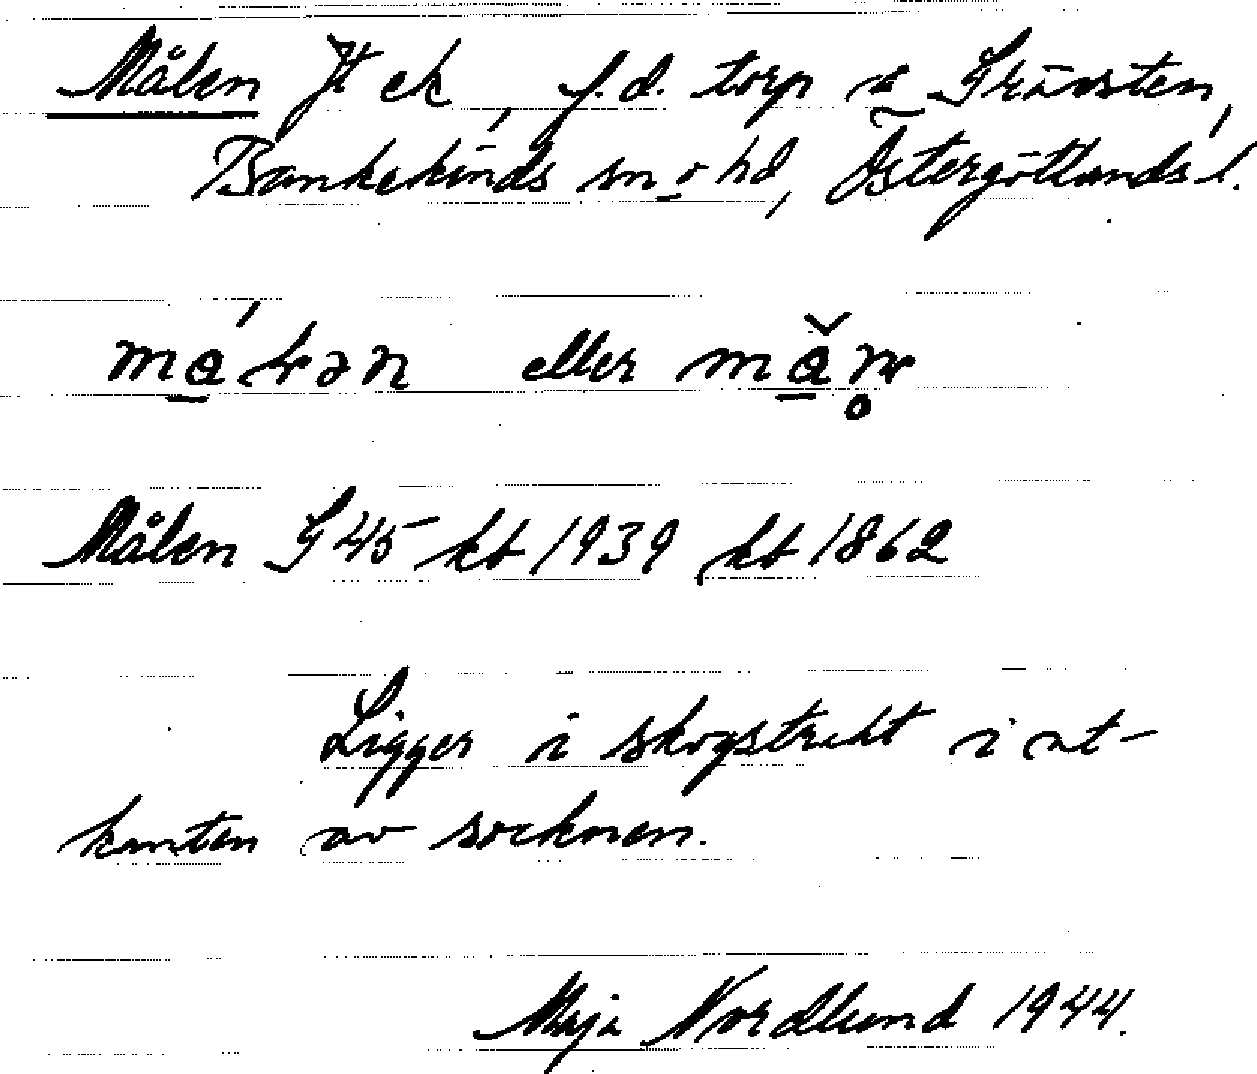 Målen Jt ek, f.d. torp å Grävsten,
Bankekinds sn o hd, Östergötlands l.
eller
Målen G 45 kb 1939 kb 1862
Ligger i skogstrakt i ut-
kanten av socknen.
Maja Nordlund 1944.